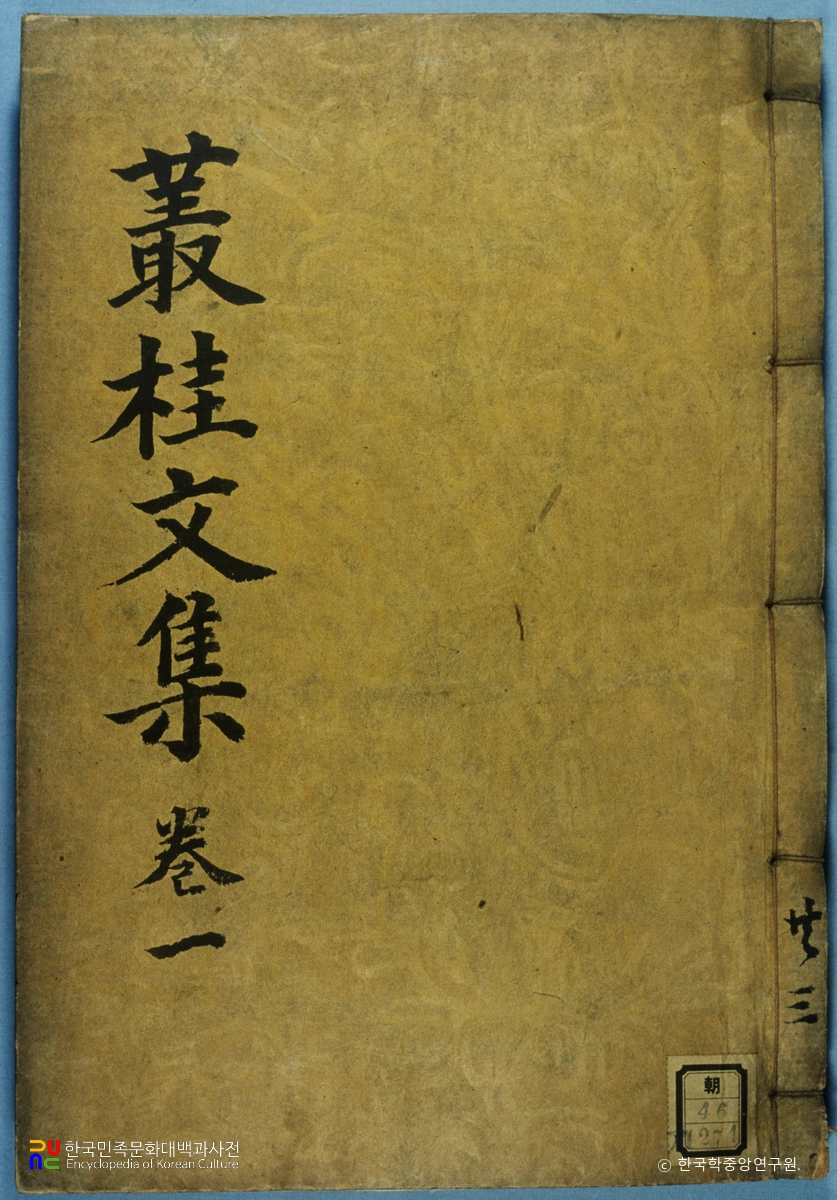 叢桂文集 卷一
共三
朝
46
한국민족문화대백과사전
Encyclopedia of Korean Culture
© 한국학중앙연구원.